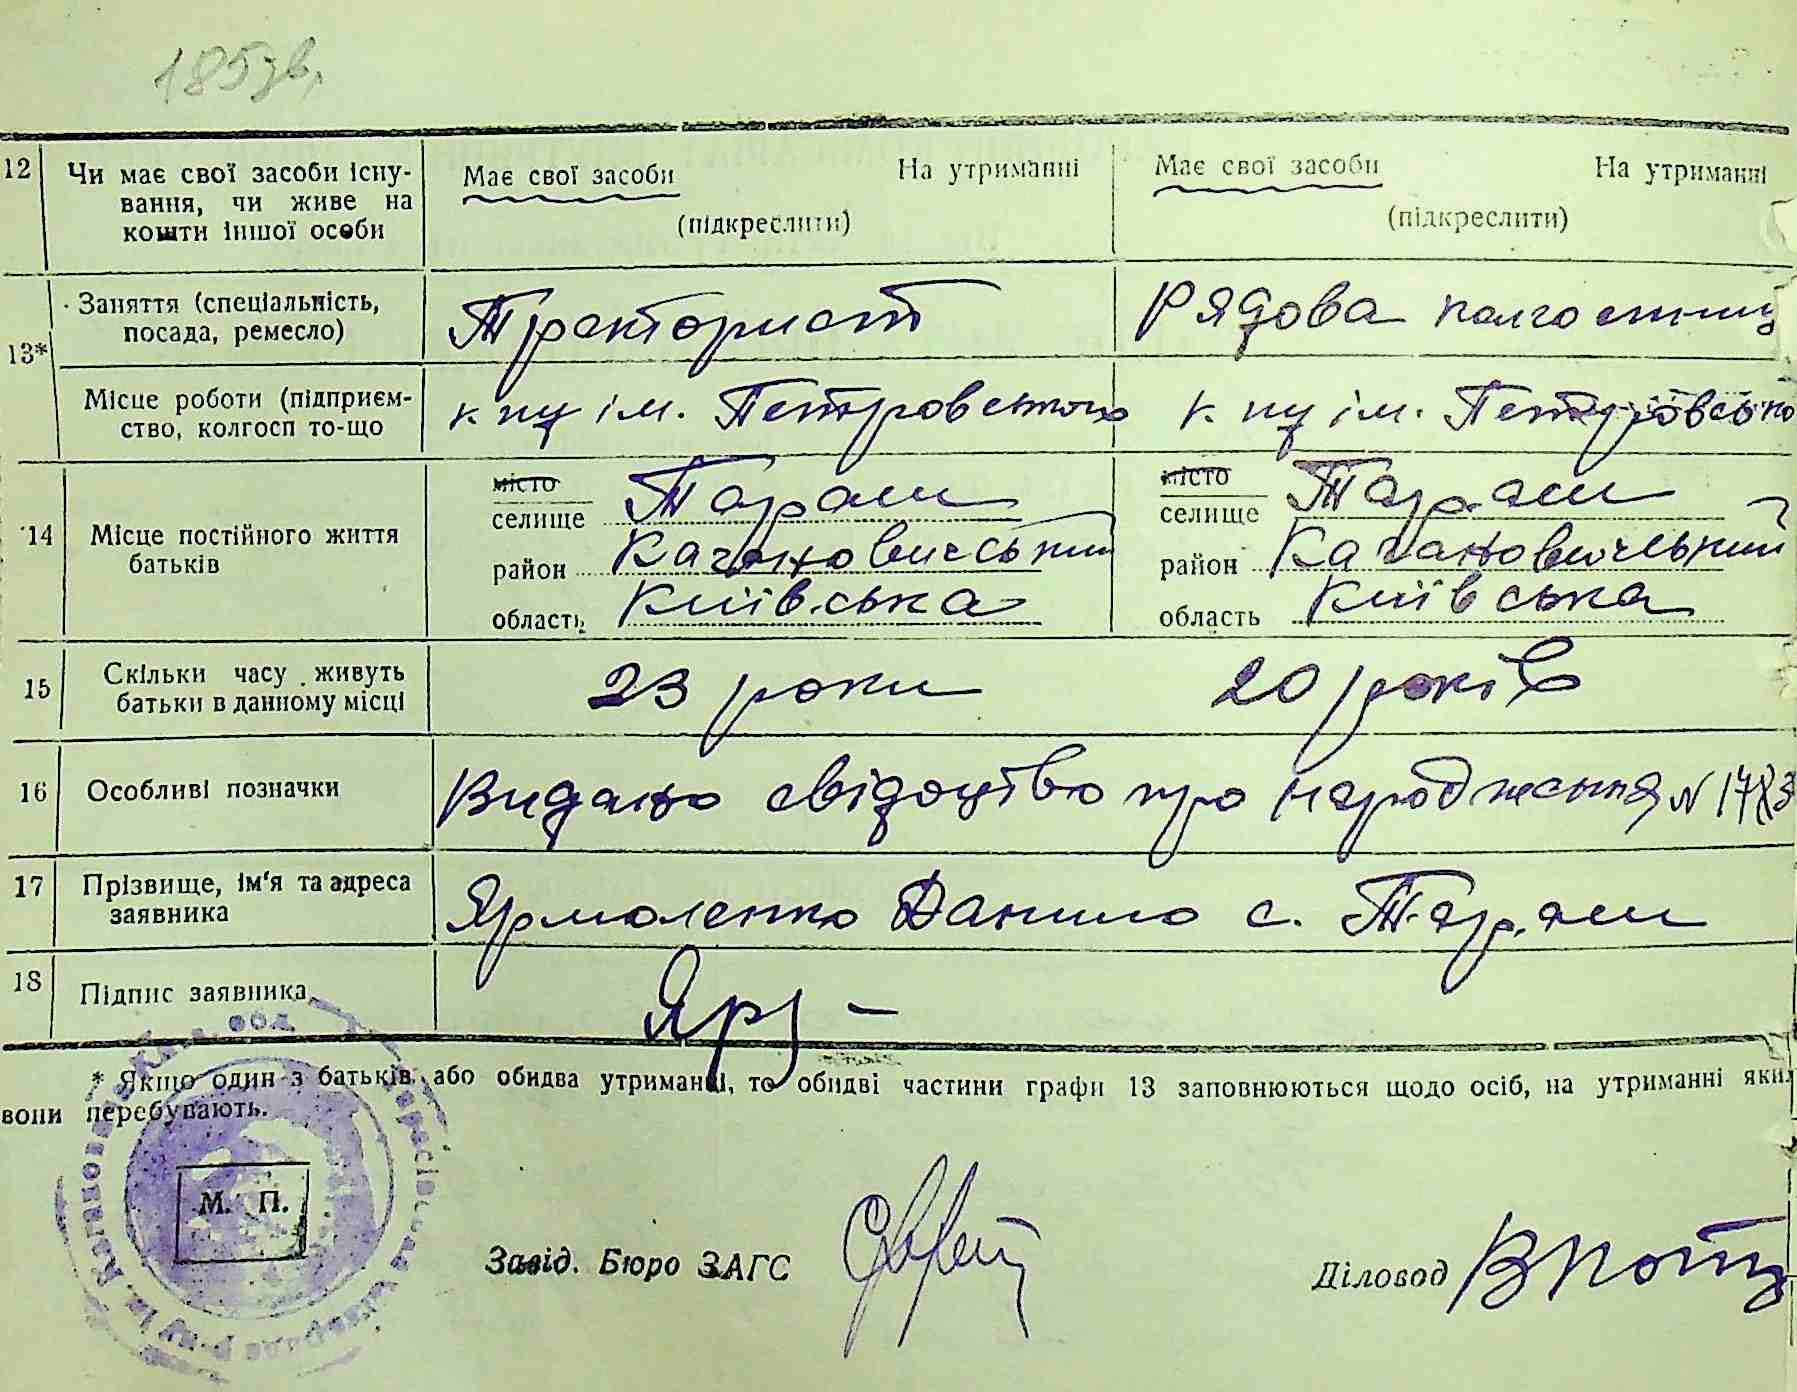 185зв.
12 Чи має свої засоби існу- Має свої засоби На утриманні Має свої засоби На утриманні
вання, чи живе на (підкреслити) (підкреслити)
кошти іншої особи
13* Заняття (спеціальність, Тракторист Рядова колгоспниц
посада, ремесло)
Місце роботи (підприєм- к-пу ім. Петровського к-пу ім. Петровсько
ство, колгосп то-що
місто місто
селище Тараси селище Тараси
14 Місце постійного життя район Кагановичський район Кагановичський
батьків область Київська область Київська
15 Скільки часу живуть 23 роки 20 років
батьки в данному місці
16 Особливі позначки Видано свідоцтво про народження N
17 Прізвище, ім'я та адреса Ярмоленко Данило с. Тараси
заявника
18 Підпис заявника Яр
* Якщо один з батьків або обидва утриманці, то обидві частини графи 13 заповнюються щодо осіб, на утриманні яких
вони перебувають.
М. П.
Завід. Бюро ЗАГС
Діловод